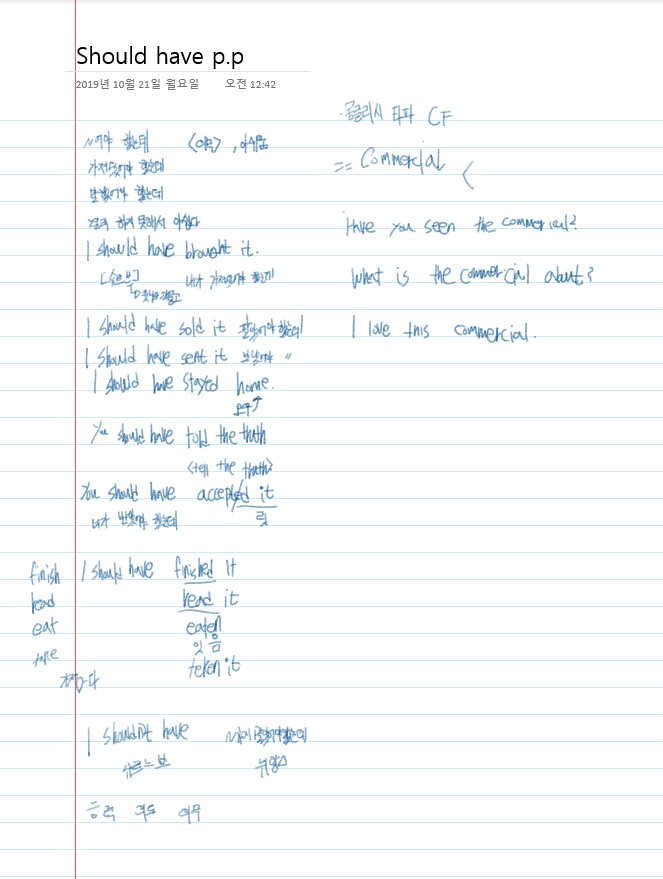 Should have p.p
2019년 10월 21일 월요일 오전 12:42
~여야 했는데 <의무>, 아쉬움
가져왔어야 했는데
말했어야 했는데
결국 하지 못해서 아쉽다
I should have brought it.
내가 가져왔어야 했는데
I should have sold it 팔았어야 했는데
I should have sent it 보냈어야 〃
I should have stayed home.
You should have told the truth
<tell the truth>
You should have accepted it
릿
네가 받았어야 했는데
finish I should have finished it
read read it
eat eaten
잇 음
take teken it
가져가다
I shouldn't have
슈르느브
능력 의무
· 콩글리시 타파 CF
= Commercial
Have you seen the commercial?
What is the commercial about?
I love this commercial.